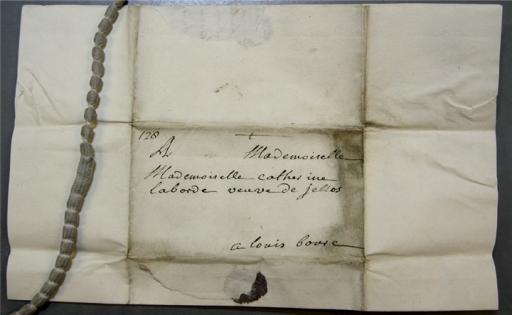 128
A Mademoiselle
Mademoiselle catherine
laborde veuve de jellos
a louis bourc